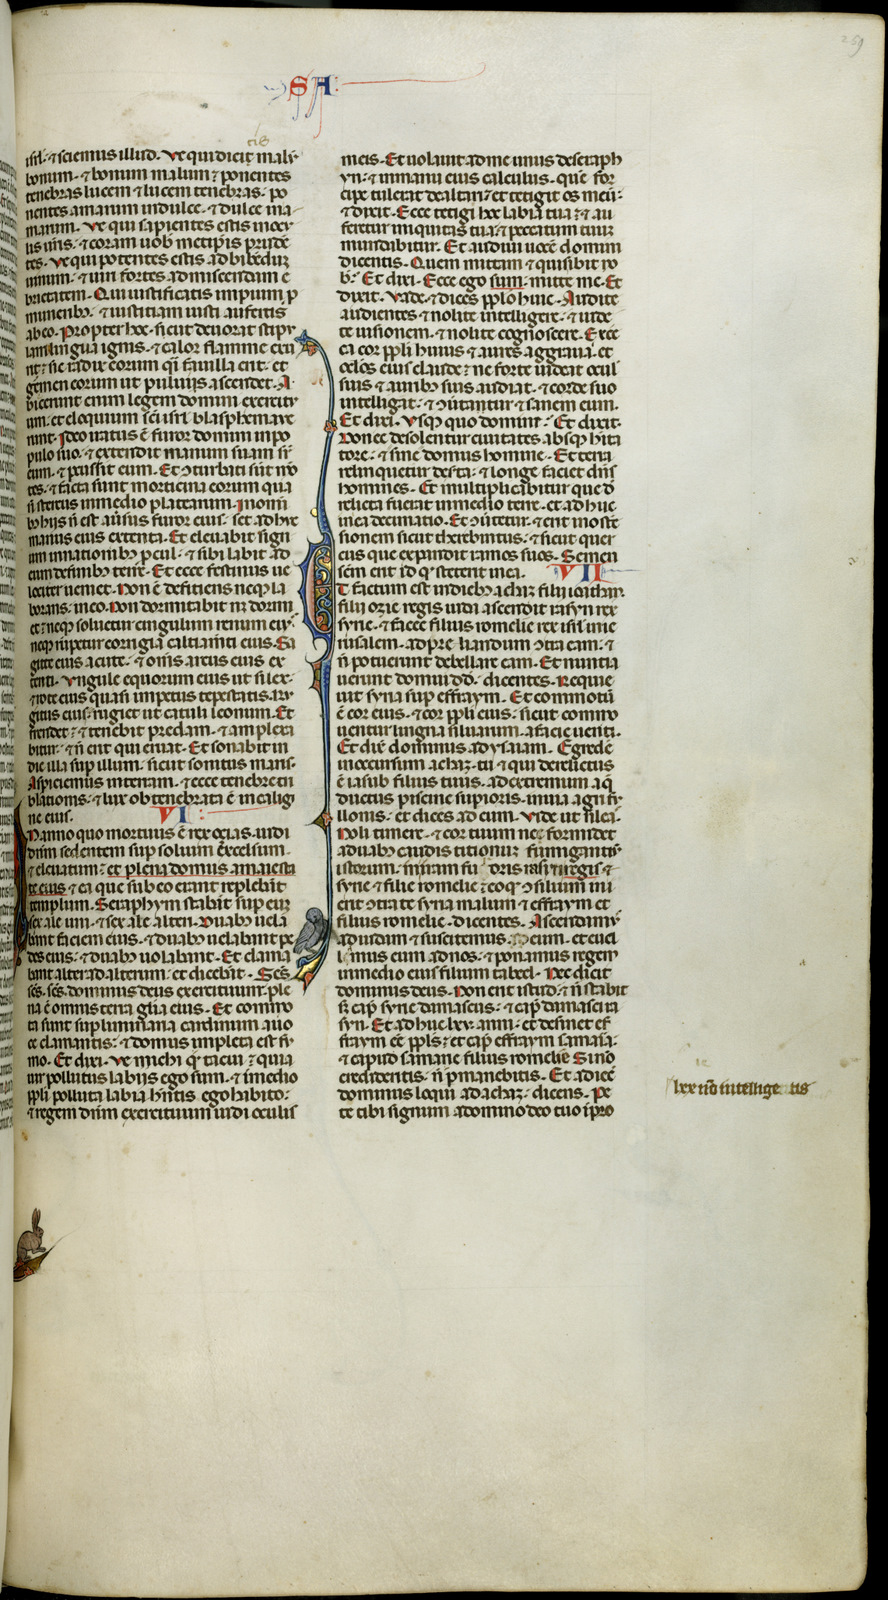 259
SA
tis
isrl. & sciemus illud. Ve qui dicit̄ malū
bonum. & bonum malum & ponentes
tenebras lucem & lucem tenebras. po
nentes amarum in dulce. & dulce in a
marum. Ve qui sapientes estis in ocu
lis uris. & coram uob̄ metipis prudē
tes. Ve qui potentes estis ad bibēdū
uinum. & uiri fortes ad miscendam e
brietatem. Qui iustificatis impium p
munerib; & iustitiam iusti aufertis
ab eo. Propter hoc sicut deuorat stipu
lam lingua ignis. & calor flamme exu
rit; sic radix eorum q̄i fauilla erit. et
germen eorum ut puluis ascendet. A
biecerunt enim legem domini exercitu
um. et eloquium sc̄i isrl blasphemaue
runt. Ideo iratus ē furor domini in po
pulo suo. & extendit manum suam sr̄
eum. & percussit eum. Et ↄturbati sūt mō
tes. & facta sunt morticina eorum qua
si stercus in medio platearum. In omī
b; hijs n̄ est au̇sus furor eius. set adhuc
manus eius extenta. Et eleuabit sign
um in nationib; p̄cul. & sibilabit ad
eum de finib; terre. Et ecce festinus ue
lociter ueniet. Non ē deficiens neq; la
borans in eo. Non dormitabit n̄ dorm
et. neq; soluetur cingulum renum eiꝰ.
neq; rūpetur corrigia caltiam̄ti eius. Sa
gitte eius acute. & om̄s arcus eius ex
tenti. Vngule equorum eius ut silex.
& rote eius quasi impetus tēpestatis. Ru
gitus eius. rugiet ut catuli leonum. Et
frendet & tenebit predam. & amplexa
bitur. & n̄ erit qui eruat. Et sonabit in
die illa sup illum. sicut sonitus maris.
Aspiciemus in terram. & ecce tenebre tri
bulationis. & lux obtenebrata ē in calig
ne eius. VI
N anno quo mortuus ē rex ozias. uidi
dn̄m sedentem sup solium excelsum.
& eleuatum & et plena domus a maiesta
te eius & ea que sub eo erant replebāt
templum. Seraphym stabāt sup eū
sex ale uni. & sex ale alteri. Duab; uela
bant faciem eius. & duab; uelabant pe
des eius. & duab; uolabant. Et clama
bant alter ad alterum. et dicebāt. Sc̄s.
sc̄s. sc̄s. dominus deus exercituum. ple
na ē omnis terra glia eius. Et commo
ta sunt supliminaria cardinum a uo
ce clamantis. & domus impleta est fu
mo. Et dixi. Ve michi q̄r tacui & quia
uir pollutus labijs ego sum. & in medio
ppli polluta labia hn̄tis ego habito.
& regem dn̄m exercituum uidi oculis
meis. Et uolauit ad me unus de seraph
yn. & in manu eius calculus. quē for
cipe tulerat de altari & et tetigit os meū.
& dixit. Ecce tetigi hoc labia tua & au
feretur iniquitas tua & peccatum tuum
mundabitur. Et audiui uocē domini
dicentis. Quem mittam & quis ibit no
b. Et dixi. Ecce ego sum. mitte me. Et
dixit. Vade. & dices pplo huic. Audite
audientes & nolite intelligere. & uide
te uisionem. & nolite cognoscere. Exce
ca cor ppli huius & aures aggraua. et
oclos eius claude & ne forte uideat ocul
suis & aurib; suis audiat. & corde suo
intelligat. & ↄuertatur & sanem eum.
Et dixi. Vsq; quo domine. Et dixit.
Donec desolentur ciuitates absq; hita
tore. & sine domus homine. Et terra
relinquetur deserta. & longe faciet dn̄s
homines. Et multiplicabitur que de
relicta fuerat in medio terre. et adhuc
in ea decimatio. Et ↄuertetur. & erit in oste
sionem sicut therebintus. & sicut quer
cus que expandit ramos suos. Semen
scm̄ erit id q̄ steterit in ea. VII
T factum est in dieb; achaz filij ioathan.
filij ozie regis iuda ascendit rasyn rex
syrie. & facee filius romelie rex isrl in ie
rusalem. ad p̄liandum ↄtra eam. &
n̄ potuerunt debellare eam. Et nuntia
uerunt domui dd. dicentes. Requie
uit syria sup effraym. Et commotū
ē cor eius. & cor ppli eius. sicut commo
uentur ligna siluarum. a facie uenti.
Et dix̄ dominus ad ysaiam. Egrede
in occursum achaz. tu & qui derelictus
ē iasub filius tuus. ad extremum aq̄
ductus piscine supioris. in uia agri fu
llonis. et dices ad eum. Vide ut sileas.
Noli timere. & cor tuum ne formidet
a duab; caudis titionum fumigantiū
istorum. in iram furoris rasin regis &
syrie & filie romelie & eo q ↄsilium ini
erit ↄtra te syria malum & effraym et
filius romelie. dicentes. Ascendamꝰ
ad iudam & suscitemus eum. et euel
lamus eum ad nos. & ponamus regem
in medio eius filium tabeel. Hec dicit
dominus deus. Non erit istud. & n̄ stabit
s; cap̄ syrie damascus. & cap̄ damascia
syn. Et adhuc lxv. anni. et desinet ef
fraym eē ppls & et cap̄ effraym samaia.
& caput samarie filius romelie Si nō
credideritis. n̄ p̄manebitis. Et adiec̄
dominus loqui ad achaz. dicens. Pe
te tibi signum a domino deo tuo i pro
lxx nō intelligetis